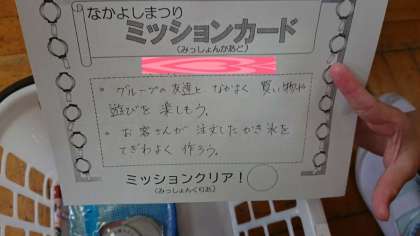 なかよしまつり
ミッションカード
(みっしょんかあど)
・グループの友達と なかよく 買い物や
遊びを 楽しもう。
・お客さんが 注文したかき氷を
てぎわよく 作ろう。
ミッションクリア!
(みっしょんくりあ)